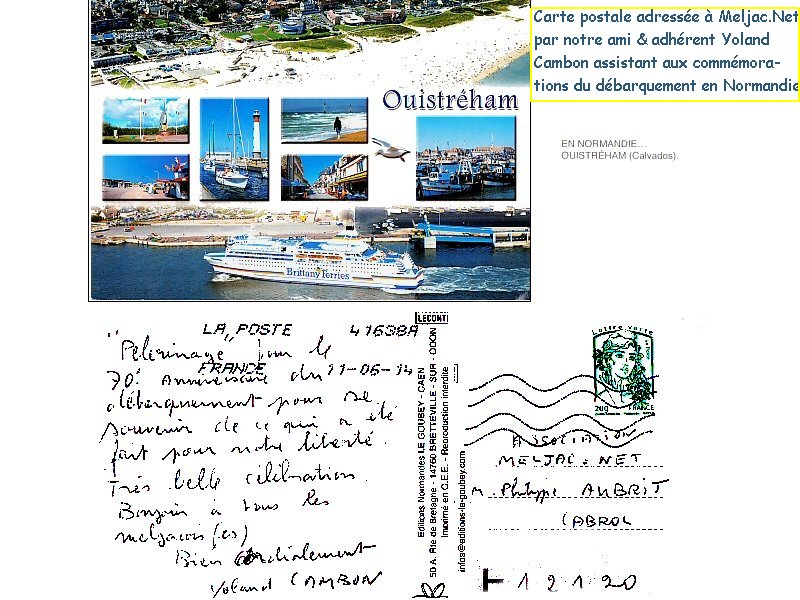 Carte postale adressée à Meljac.Net
par notre ami & adhérent Yoland
Cambon assistant aux commémora-
tions du débarquement en Normandie
Ouistréham
EN NORMANDIE...
OUISTRÉHAM (Calvados).
Brittany Ferries
LA POSTE 41638A
FRANCE 11-06-14
"Pélerinage" pour le
70e Anniversaire du
débarquement pour se
souvenir de ce qui a été
fait pour notre liberté.
Très belle célébration.
Bonjour à tous les
meljacois (es)
Bien Cordialement
Yoland CAMBON
LECONTE
Editions Normandes LE GOUBEY - CAEN
50 A, Rte de Bretagne - 14760 BRETTEVILLE - SUR - ODON
Imprimé en C.E.E. - Reproduction interdite
infos@editions-le-goubey.com
Lettre Verte
20g FRANCE
ASSOCIATION
MELJAC.NET
M. Philippe AUBRIT
CABROL
12120